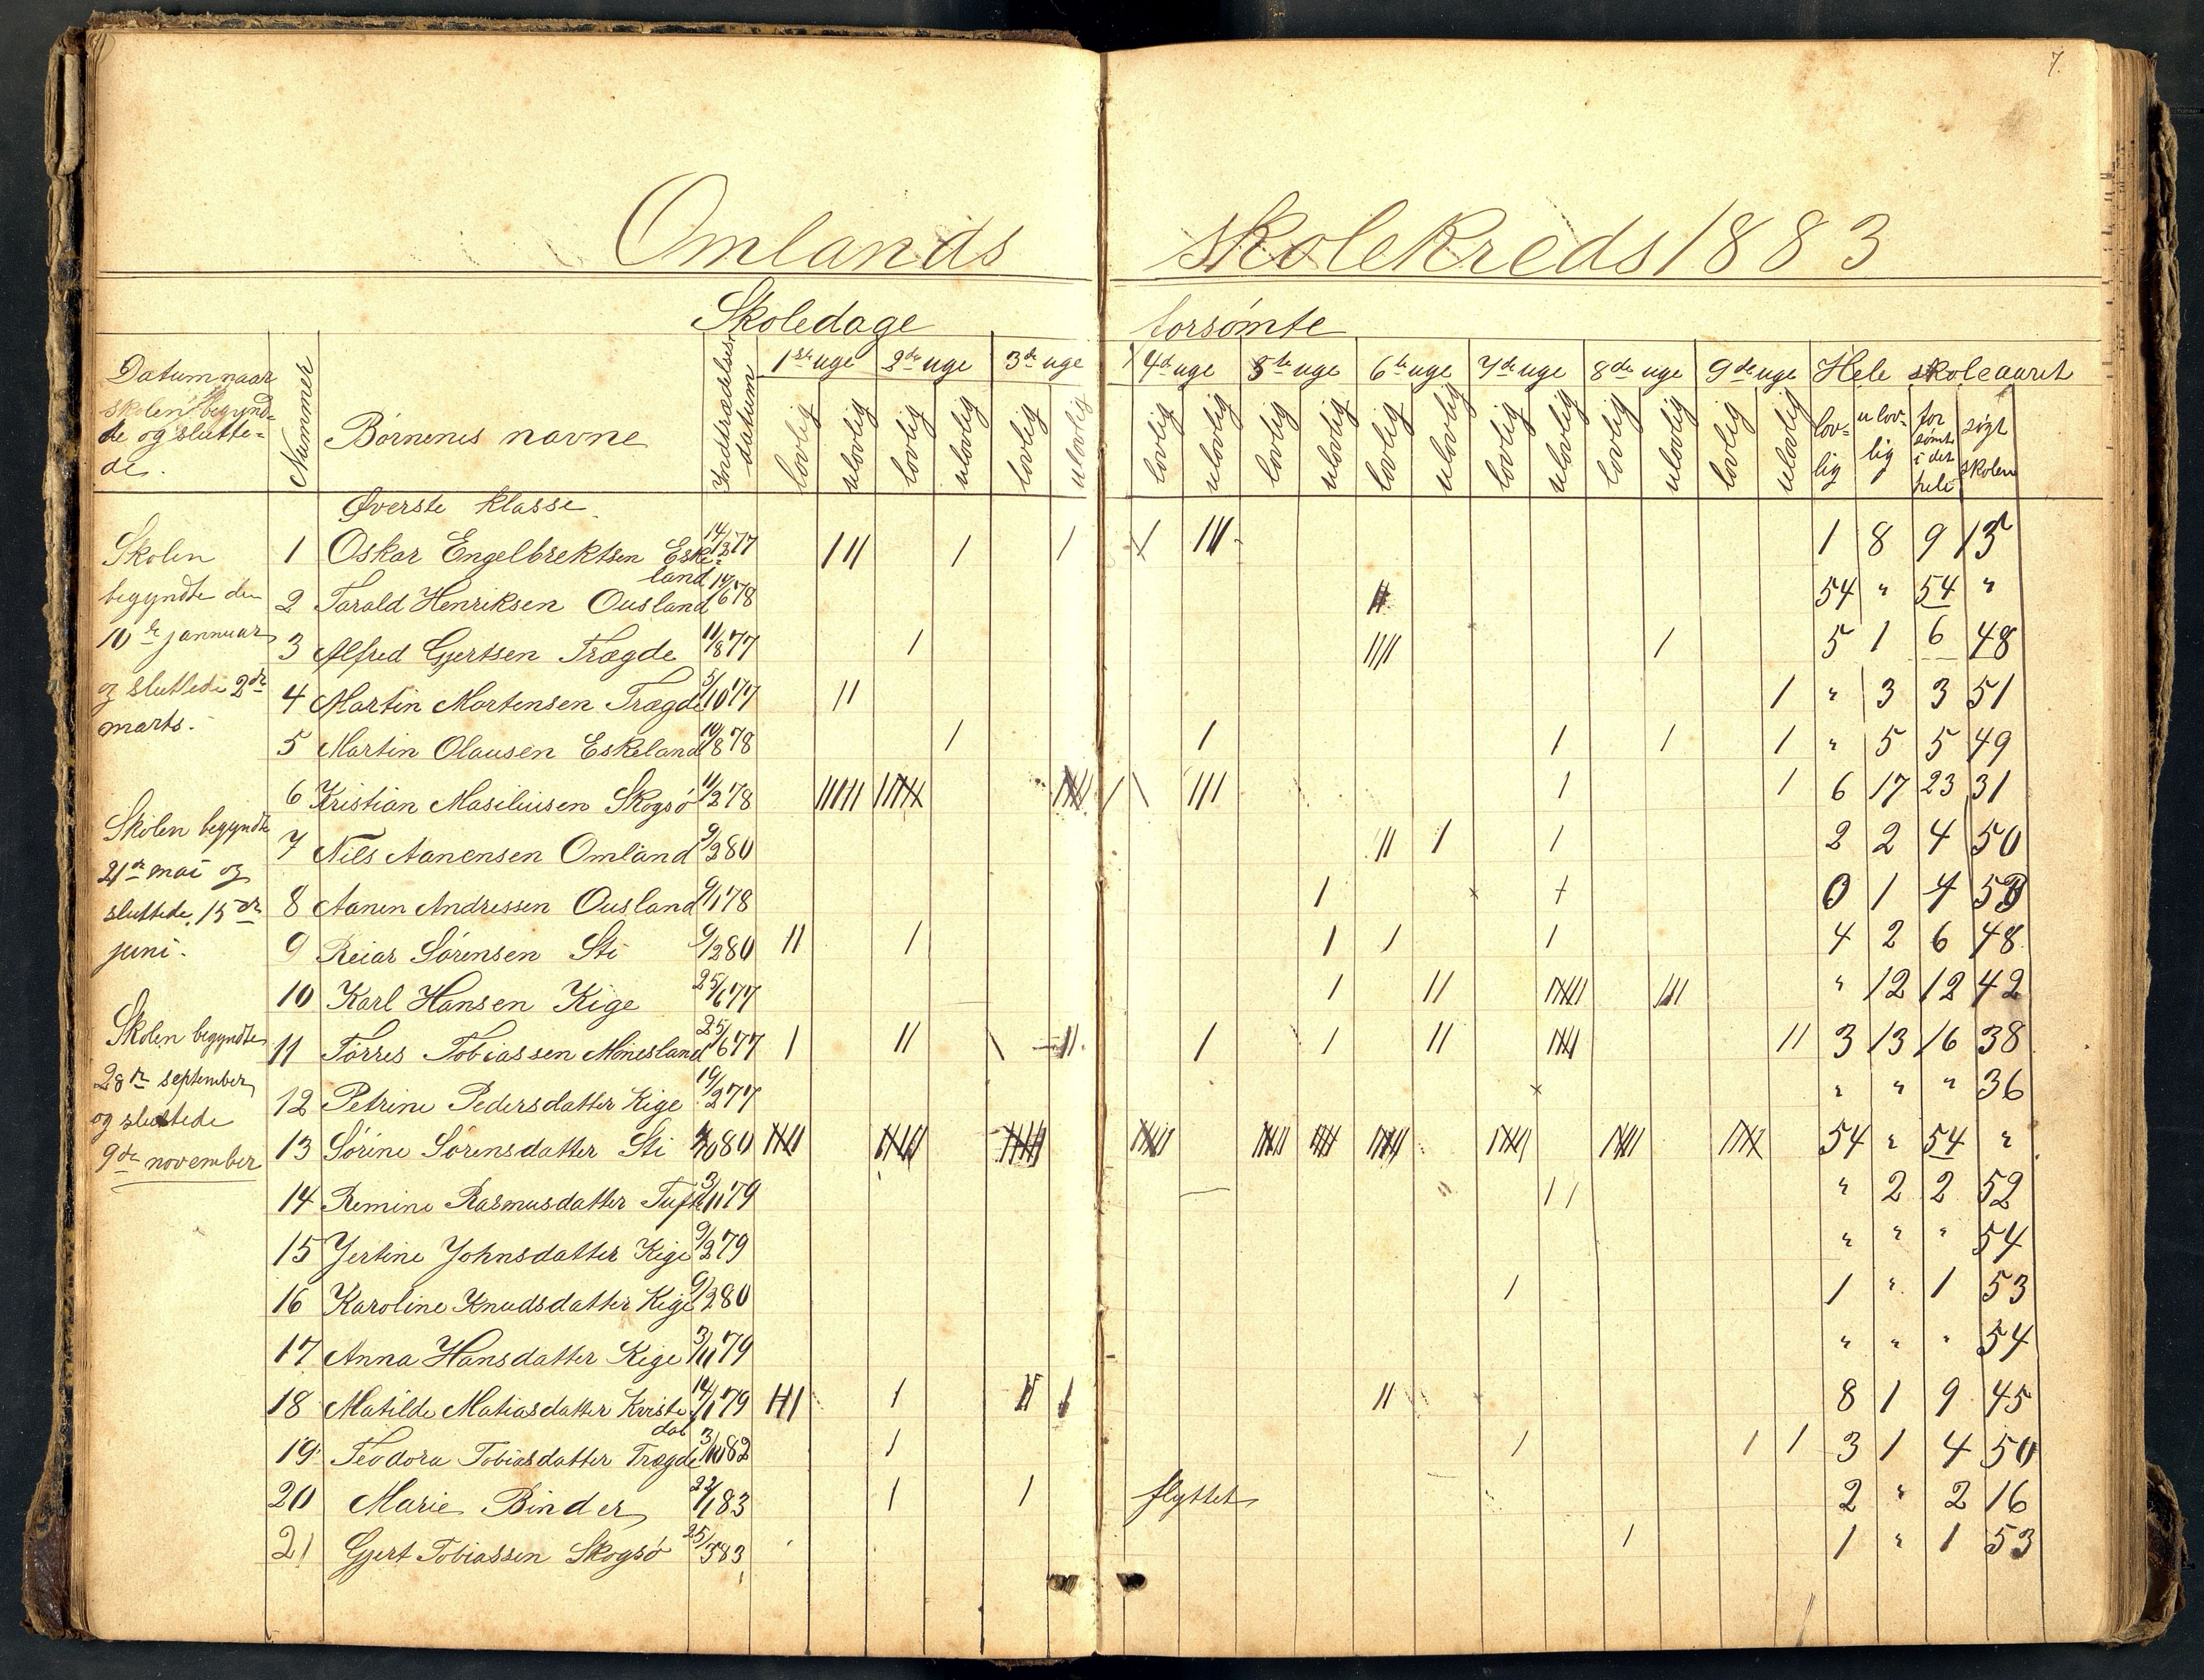 7.
Omlands skolekreds 1883
Skoledage forsømte
Datum naar skolen begynd= te og slutte= de.
Nummer
Børnenes navne
Indtrædelses datum
1ste uge 2den uge 3de uge 4de uge 5te uge 6te uge 7de uge 8de uge 9de uge Hele skoleaaret
lovlig ulovlig lovlig ulovlig lovlig ulovlig lovlig ulovlig lovlig ulovlig lovlig ulovlig lovlig ulovlig lovlig ulovlig lovlig ulovlig lov= lig ulov= lig for sømt i det hele søgt skolen
Øverste klasse.
Skolen
begyndte den
10de januar
og sluttede 2den
marts.
Skolen begyndte
21de mai og
sluttede 15de
juni.
Skolen begyndte
28de september
og sluttede
9de november
1 Oskar Engelbrektsen Eske= land 14/3 77 III I I I III 1 8 9 15
2 Tarald Henriksen Ousland 14/6 78 54 " 54 "
3 Alfred Gjertsen Trægde 11/8 77 I IIII I 5 1 6 48
4 Martin Mortensen Trægde 5/10 77 II I " 3 3 51
5 Martin Olausen Eskeland 10/8 78 I I I I I " 5 5 49
6 Kristian Masiliusen Skogsø 11/2 78 6 17 23 31
7 Nils Aanensen Omland 9/2 80 II I I 2 2 4 50
8 Aanen Andressen Ousland 9/1 78 I 0 1 4 53
9 Reiar Sørensen Sti 9/2 80 II I I I I 4 2 6 48
10 Karl Hansen Kige 25/6 77 I II " 12 12 42
11 Tørres Tobiassen Mønesland 25/6 77 I II I II I I II II 3 13 16 38
12 Petrine Pedersdatter Kige 19/2 77 " " " 36
13 Sørine Sørensdatter Sti 80 54 " 54 "
14 Remine Rasmusdatter Tufte 3/11 79 II " 2 2 52
15 Jertine Johnsdatter Kige 9/2 79 " " " 54
16 Karoline Knudsdatter Kige 9/2 80 I 1 " 1 53
17 Anna Hansdatter Kige 3/11 79 " " " 54
18 Matilde Matiasdatter Kviste dal 14/1 79 III I II I II 8 1 9 45
19 Teodora Tobiasdatter Trægde 3/10 82 I I I I 3 1 4 50
20 Marie Binder 22/1 83 I I flyttet 2 " 2 16
21 Gjert Tobiassen Skogsø 25/5 83 I 1 " 1 53